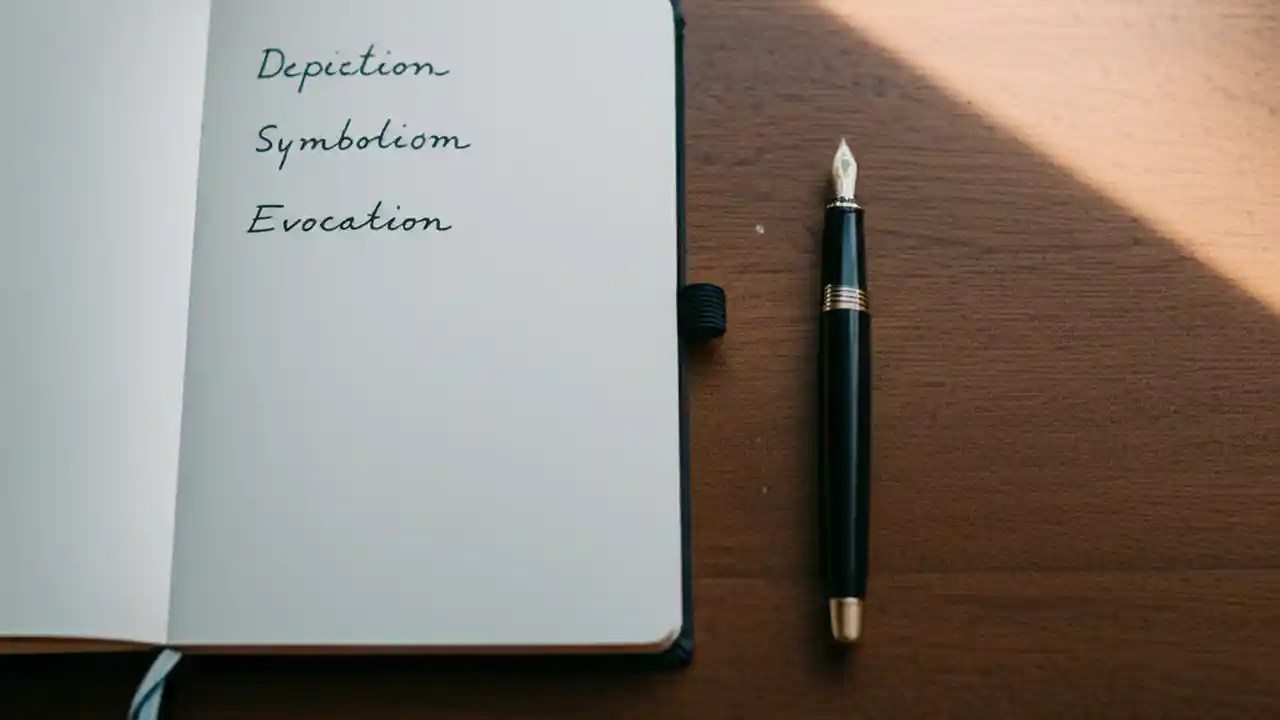 Depiction
Symboliom
Evocation